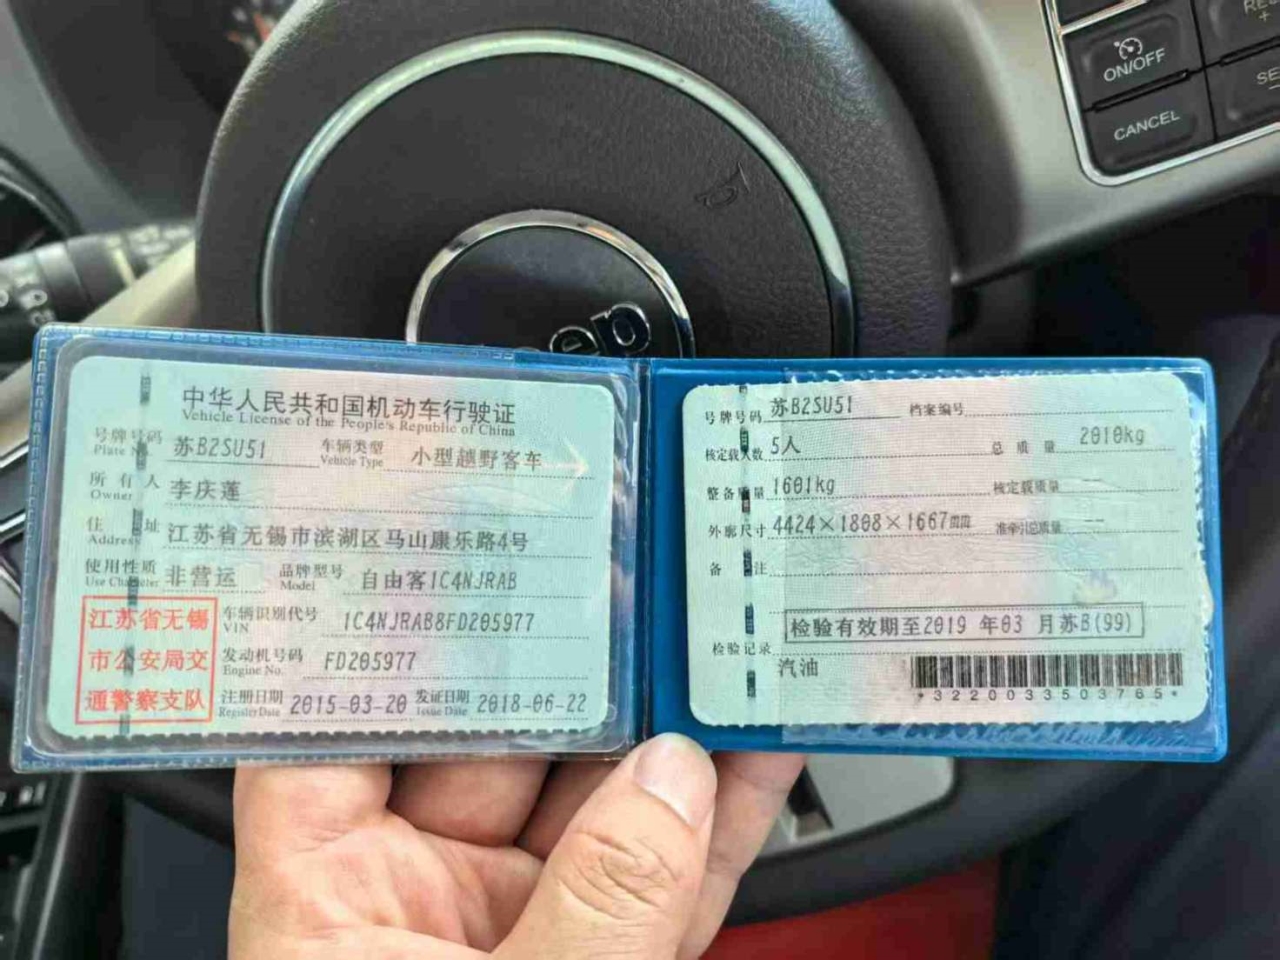 ON/OFF
CANCEL
中华人民共和国机动车行驶证
Vehicle License of the People's Republic of China
号牌号码 苏B2SU51 车辆类型 小型越野客车
Plate No. Vehicle Type
所有人 李庆莲
Owner
住址 江苏省无锡市滨湖区马山康乐路4号
Address
使用性质 非营运 品牌型号 自由客1C4NJRAB
Use Character Model
江苏省无锡
市公安局交
通警察支队
车辆识别代号 1C4NJRAB8FD205977
VIN
发动机号码 FD205977
Engine No.
注册日期 2015-03-20 发证日期 2018-06-22
Register Date Issue Date
号牌号码 苏B2SU51 档案编号
核定载人数 5人 总质量 2010kg
整备质量 1601kg 核定载质量 --
外廓尺寸 4424×1808×1667mm 准牵引总质量 --
备注
检验有效期至2019年03月苏B(99)
检验记录
汽油
*3220033503765*